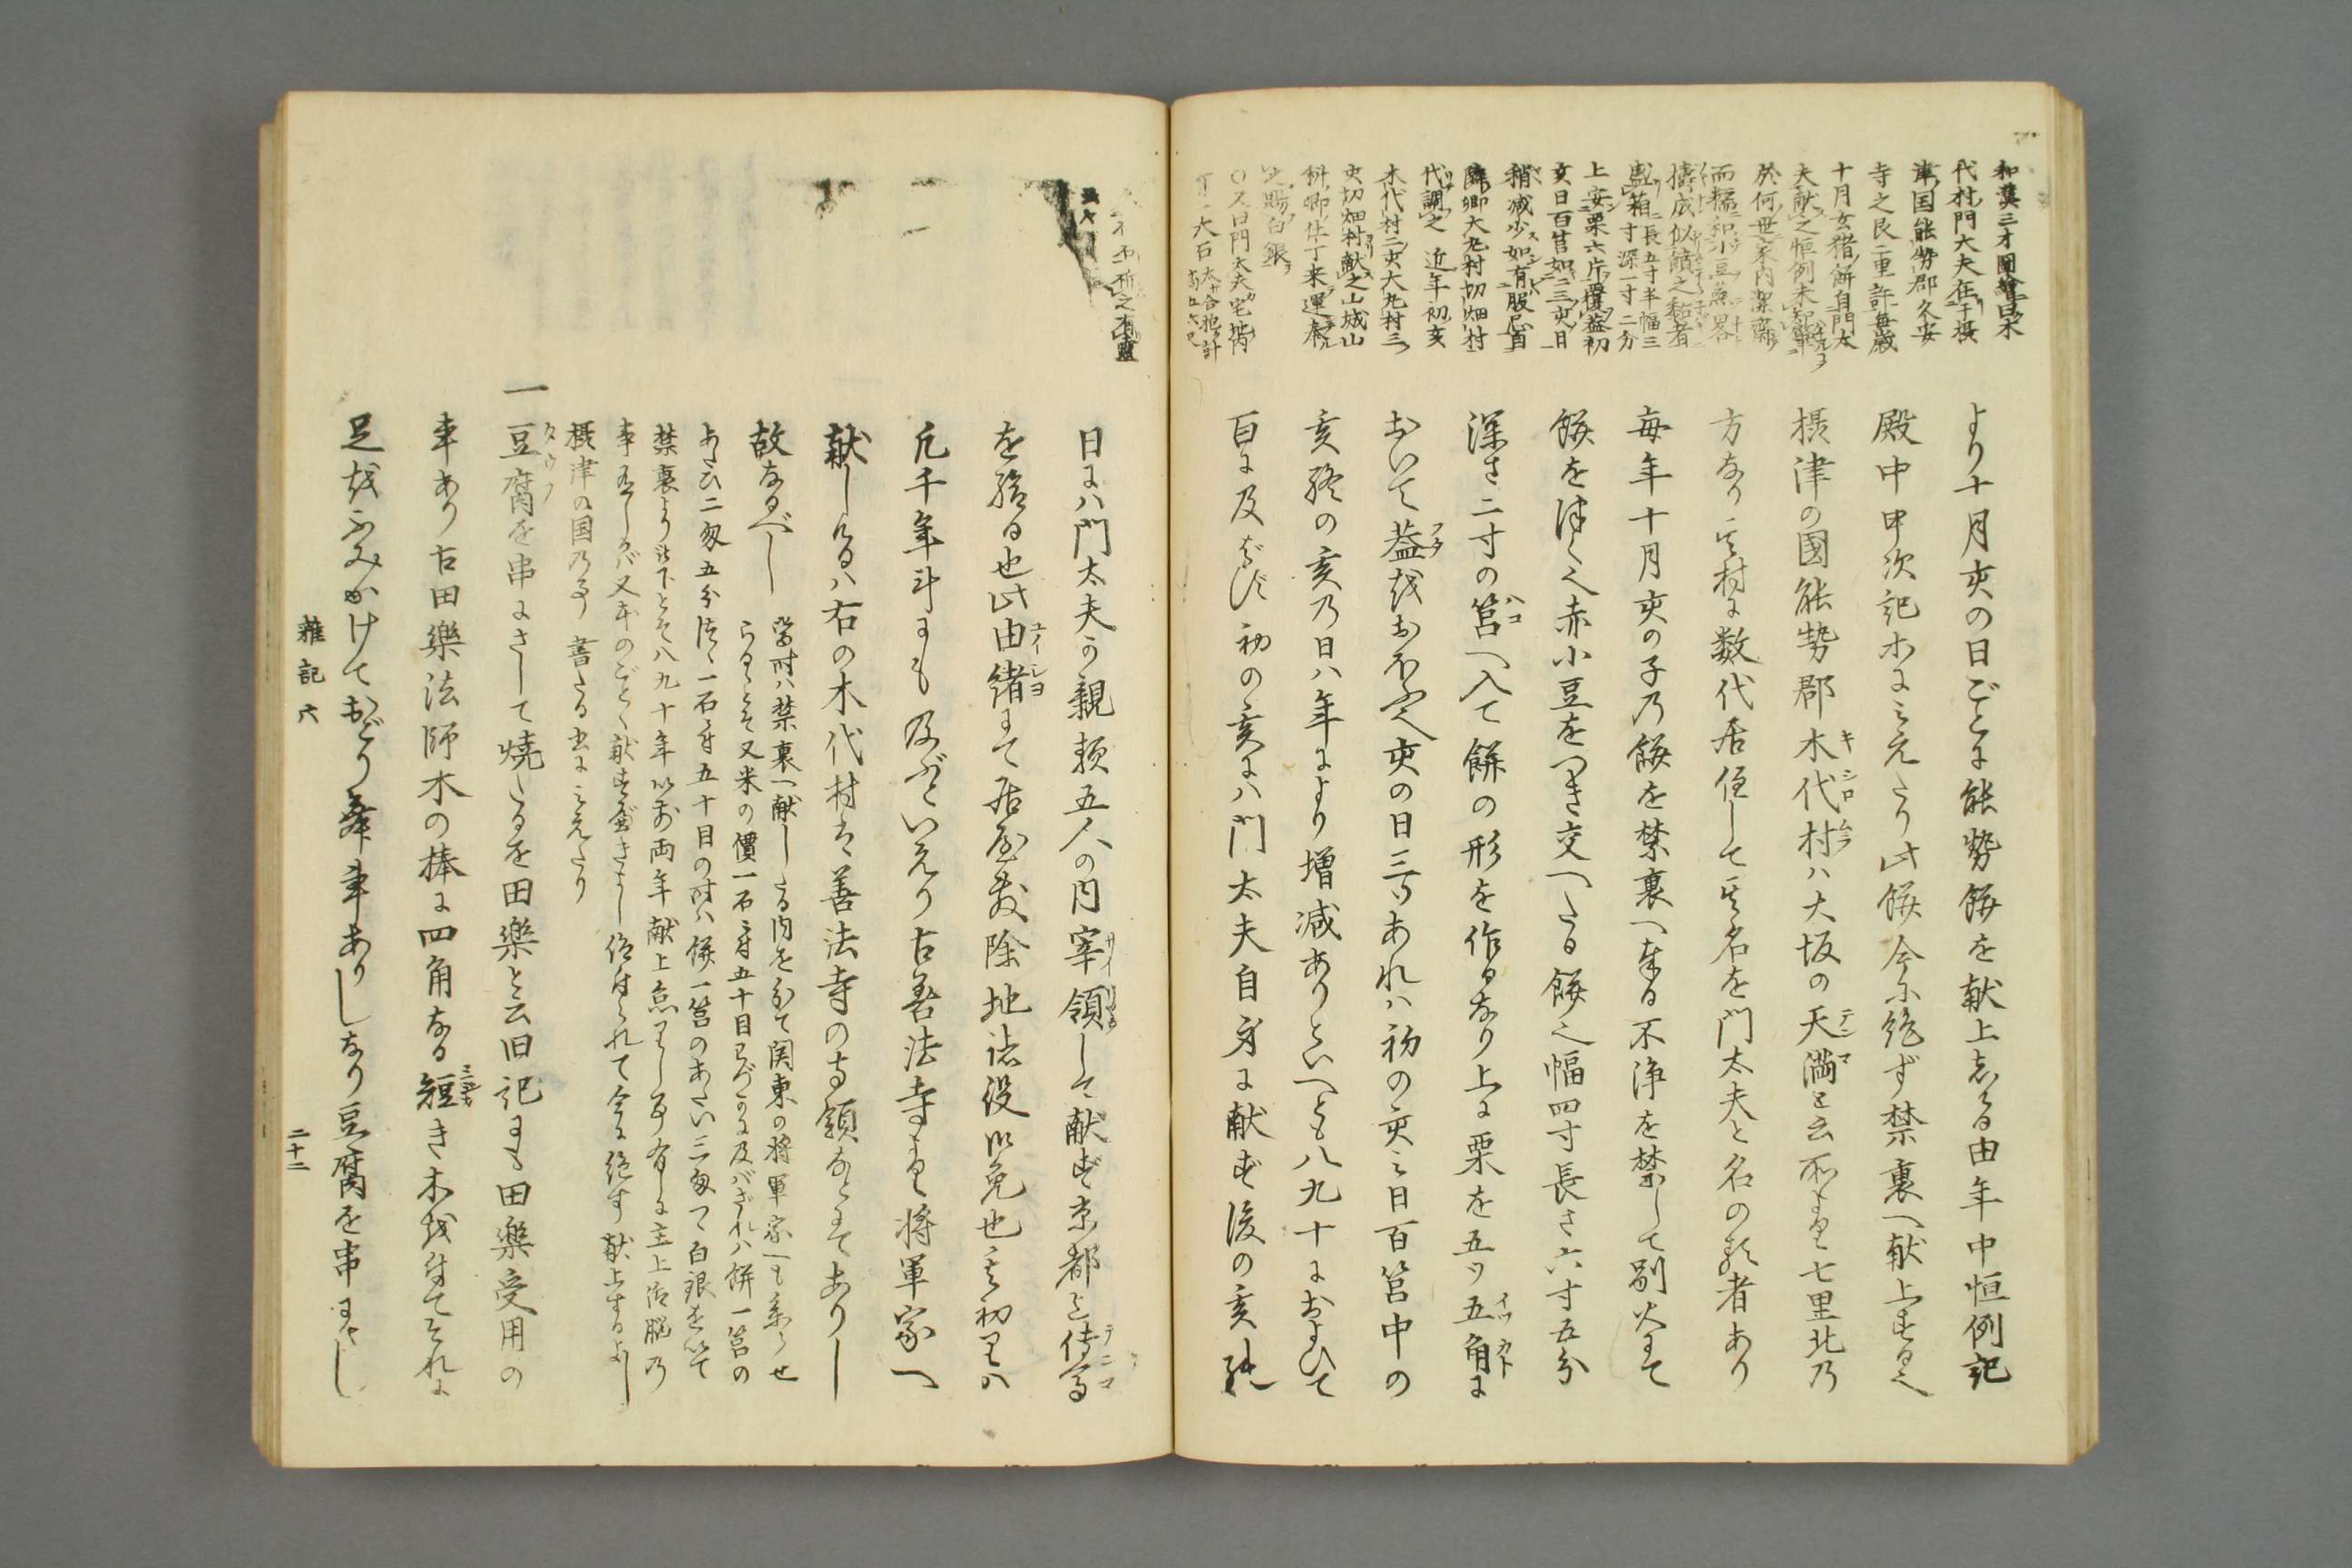 和漢三才圖會曰木
代村門大夫在于摂
津国能勢郡久安
寺之艮二里許毎歳
十月玄猪餅自門太
夫献之恒例未知
於何世家内潔齋
而糯和小豆煮
擣成似饋之粘者
盛箱長五寸半幅三寸深一寸二分
上安栗六片覆蓋初
亥日百筥如二三亥日
稍减少如有服忌自
隣卿大丸村切畑村
代調之 近年初亥
木代村二亥大丸村三
亥切畑村献之山城山
科卿仕丁来運
賜白銀
〇又曰門太夫宅地内
大石
より十月亥の日ごとに能勢餅を献上する由年中恒例記
殿中申次記ホにみえたり此餅今に絶ず禁裏へ献上するなり
摂津の國能勢郡木代村ハ大坂の天満と云所より七里北の
方なり其村に数代居住して其名を門太夫と名のる者あり
毎年十月亥の子乃餅を禁裏へ奉る不浄を禁して別火にて
餅を津く也赤小豆をつき交へたる餅也幅四寸長さ六寸五分
深さ二寸の筥へ入て餅の形を作るなり上に栗を五ツ五角に
おいて蓋をおほふ也亥の日三ツあれハ初の亥の日百筥中の
亥終の亥乃日ハ年により増减ありといへとも八九十におよひて
百に及ばず初の亥にハ門太夫自身に献ず後の亥終
日にハ門太夫の親類五人の内宰領して献ず京都より傳馬
を給る也此由緒にて居屋敷除地諸役御免也其初りハ
凡千年斗にも及ぶといえり古善法寺より将軍家へ
献しけるハ右の木代村は善法寺の寺領なとにてありし
故なるべし
當時ハ禁裏へ献したる内を分て関東の将軍家へも参らせ
らるゝとそ又米の價一石ニ付五十目に及バざれハ餅一筥の
あたひ二匁五分つゝ一石ニ付五十目の時ハ餅一筥のあたい三匁つゝ白銀を以て
禁裏より下とそ八九十年以前両年献上怠し事有しに主上御脳乃
事有しかバ又本のごとく献ずべきよし仰付られて今に絶す献上するよし
摂津の国乃事書たる書にみえたり
一豆腐を串にさして焼たるを田樂と云旧記にも田樂受用の
事あり古田樂法師木の棒に四角なる短き木を付てそれに
足をふみかけておどり舞事ありしなり豆腐を串にさし
雑記六
二十二